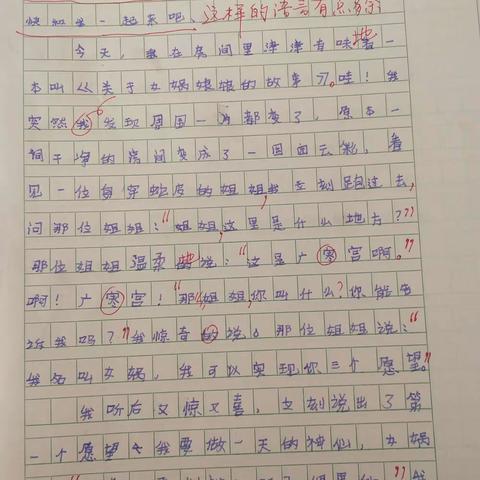 快和我一起来吧、这样的语言有点多余
今天，我在房间里津津有味地看一
本叫《关于女娲娘娘的故事》。哇！我
突然我发现周围一切都变了，原本一
间干净的房间变成了一团团云彩，看
见一位身穿蛇皮的姐姐，我立刻跑过去，
问那位姐姐：“姐姐，这里是什么地方？”
那位姐姐温柔地说：“这是广寒宫啊。”
啊！广寒宫！“那姐姐，你叫什么？你能告
诉我吗？”我惊奇的说。那位姐姐说：“
我名叫女娲，我可以实现你三个愿望。”
我听后又惊又喜，立刻说出了第
一个愿望我要做一天的神仙，女娲